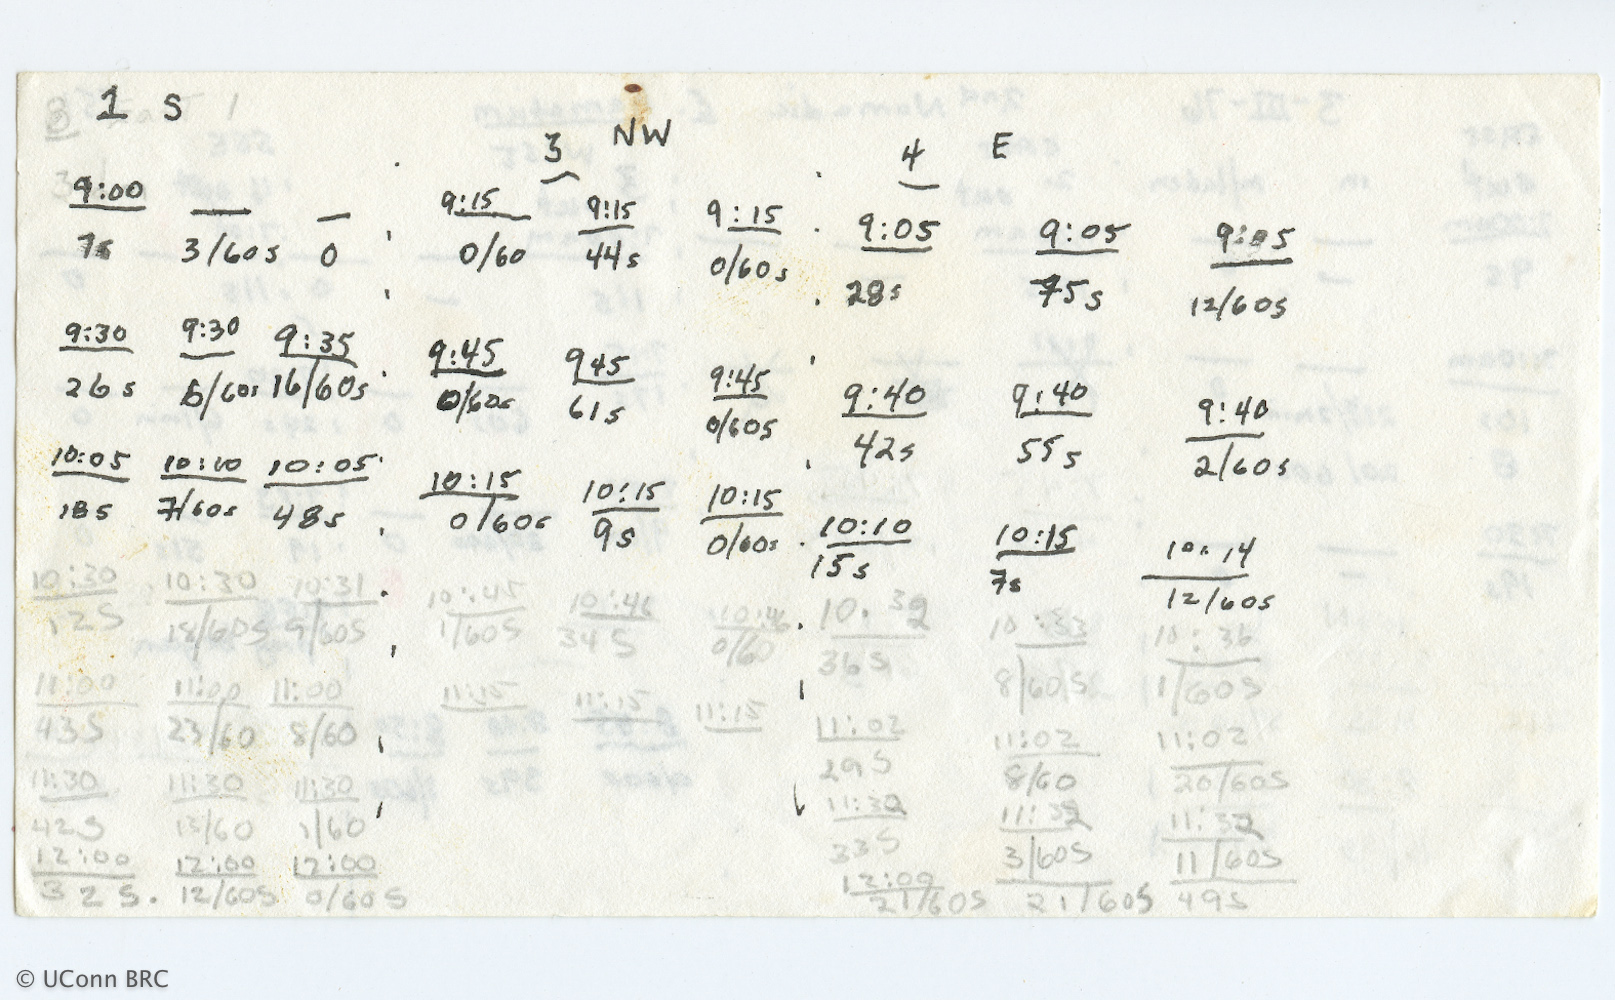 1 S
3 NW 4 E
9:00 — — 9:15 9:15 9:15 9:05 9:05 9:05
7s 3/60s 0 0/60 44s 0/60s 28s 75s 12/60s
9:30 9:30 9:35 9:45 945 9:45 9:40 9:40 9:40
26s 6/60s 16/60s 0/60s 61s 0/60s 42s 55s 2/60s
10:05 10:10 10:05 10:15 10:15 10:15 10:10 10:15 10:14
18s 7/60s 48s 0/60s 9s 0/60s 15s 7s 12/60s
10:30 10:30 10:31 10:45 10:46 10:46 10:32 10:33 10:36
12S 18/60S 9/60S 1/60S 34S 0/60 36S 8/60S 1/60S
11:00 11:00 11:00 11:15 11:15 11:15 11:02 11:02 11:02
43S 23/60 8/60 29S 8/60 20/60S
11:30 11:30 11:30 11:32 11:32 11:32
42S 13/60 1/60 33S 3/60S 11/60S
12:00 12:00 12:00 12:00
32S. 12/60S 0/60S 21/60S 21/60S 49S
© UConn BRC